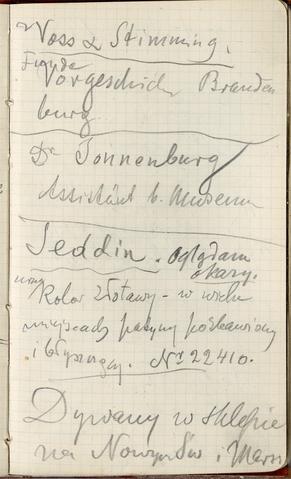 Voss & Stimming.
Vorgeschich Branden
burg
Dr Sonnenburg
Assistent b. Museum
Seddin. oglądam
okazy.
Kolor złotawy - w wielu
miejscach patyny pozbawiony
i błyszczący. Nr 22410.
Dywany w sklepie
na Nowym Św i Marsz